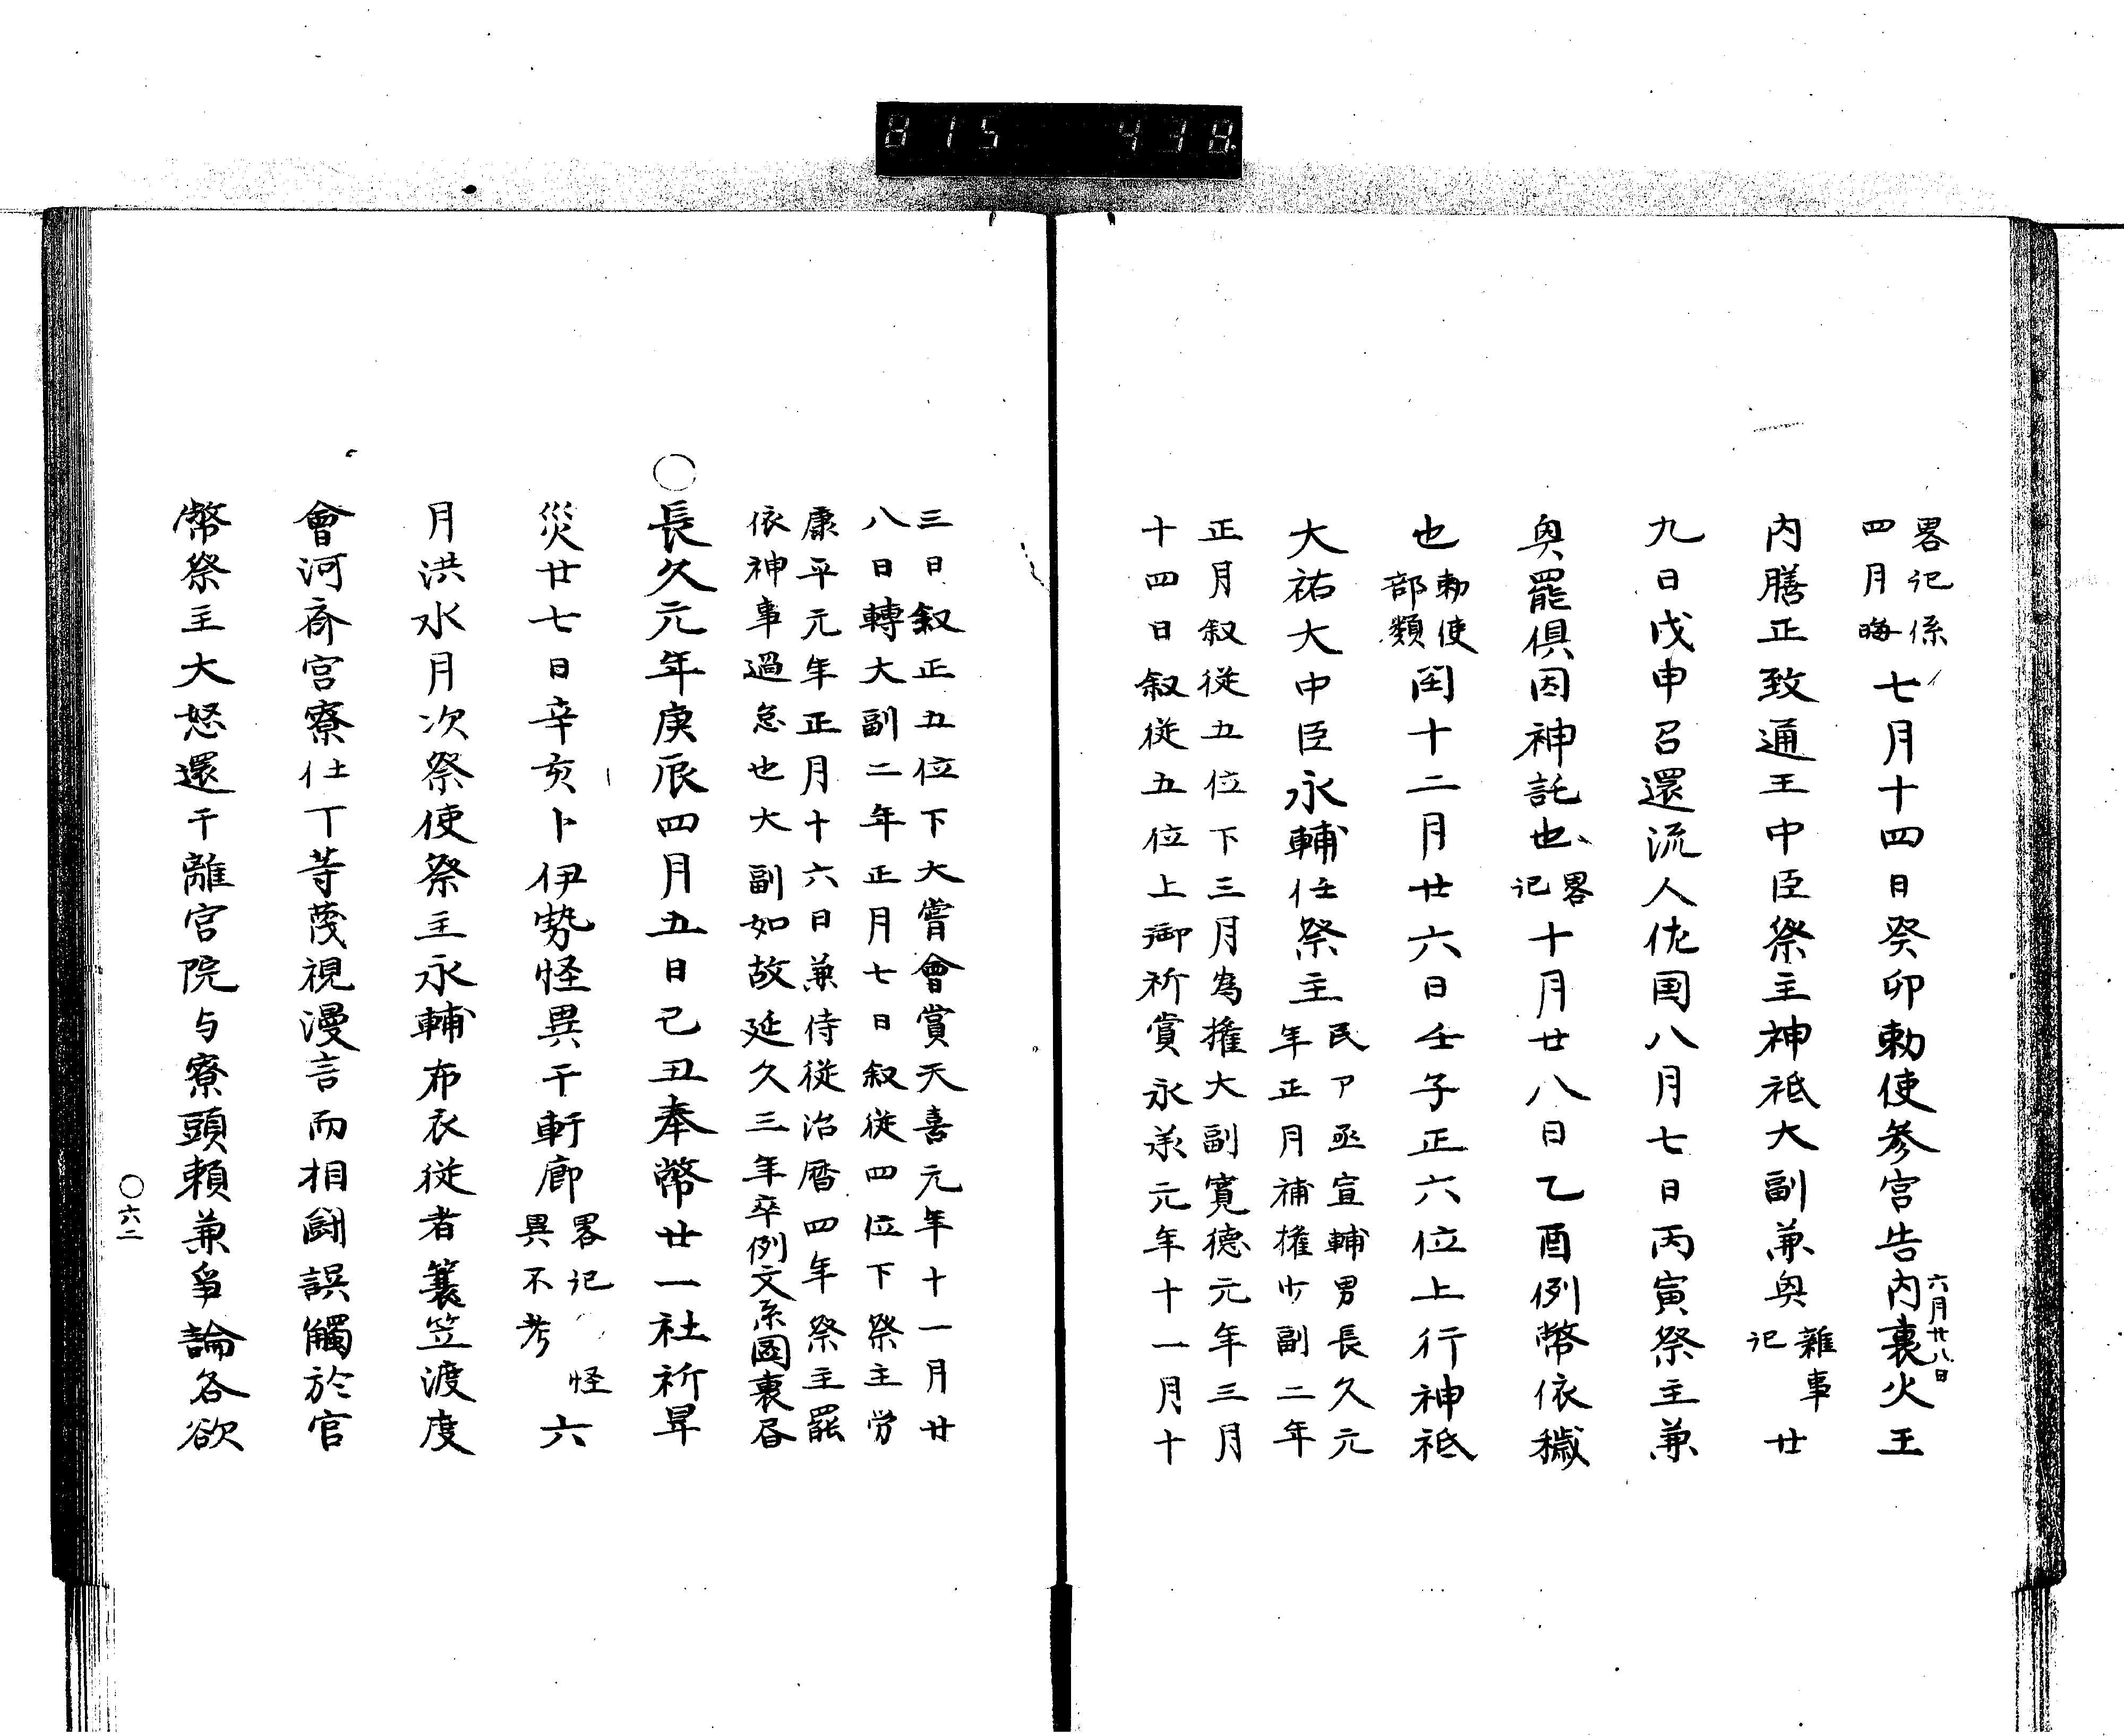 815 438
畧記係
四月晦
七月十四日癸卯勅使参宮告内裏火王
六月廿八日
内膳正致通王中臣祭主神祇大副兼奥
雜事
記
廿
九日戊申召還流人佐国八月七日丙寅祭主兼
奥罷俱因神託也
畧
記
十月廿八日乙酉例幣依穢
也
勅使
部類
閏十二月廿六日壬子正六位上行神祇
大祐大中臣永輔任祭主
民ア丞宣輔男長久元
年正月補権少副二年
正月叙從五位下三月為権大副寛德元年三月
十四日叙從五位上御祈賞永承元年十一月十
三日叙正五位下大嘗會賞天喜元年十一月廿
八日轉大副二年正月七日叙從四位下祭主労
康平元年正月十六日兼侍從治暦四年祭主罷
依神事過怠也大副如故延久三年卒例文系圖裏昏
〇長久元年庚辰四月五日己丑奉幣廿一社祈旱
災廿七日辛亥卜伊勢怪異于軒廊
畧記 怪
異不考
六
月洪水月次祭使祭主永輔布衣從者簑笠渡度
會河斎宮寮仕丁等蔑視漫言而相闘誤觸於官
幣祭主大怒還于離宮院与寮頭頼兼爭論各欲
〇六二